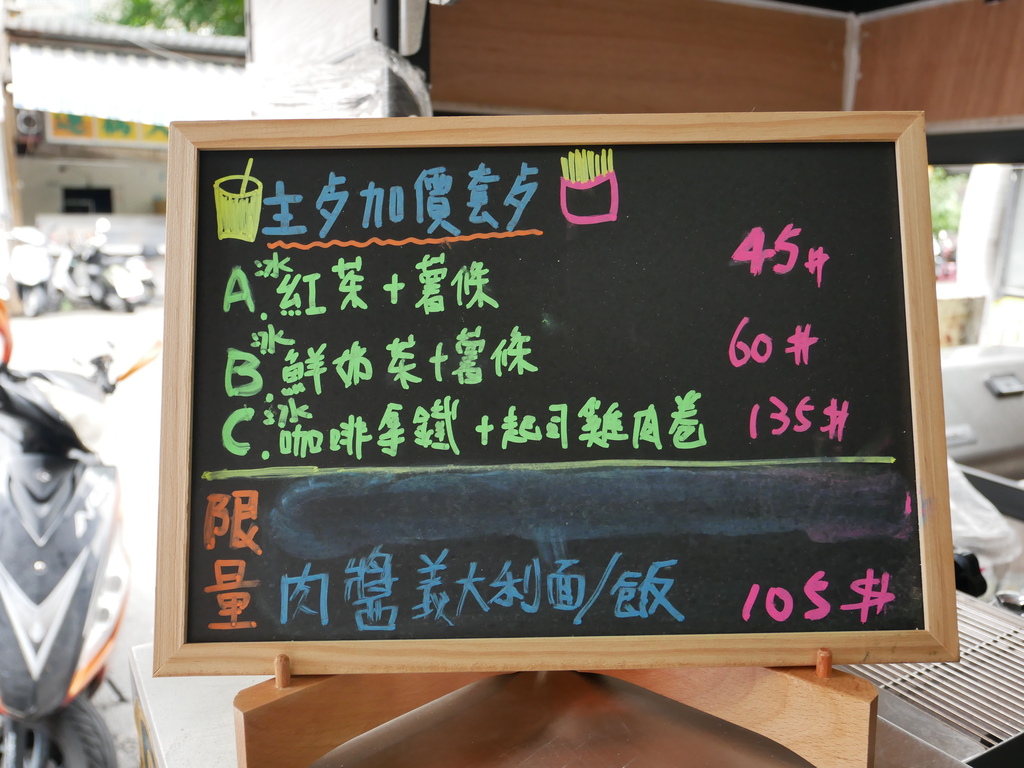 主歺加價套歺
A.冰紅茶+薯條 45#
B.冰鮮奶茶+薯條 60#
C.冰咖啡拿鐵+起司雞肉卷 135#
限量 肉醬義大利面/飯 105#